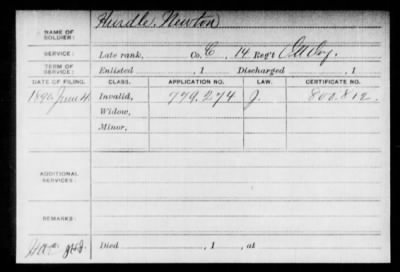 NAME OF SOLDIER: Hurdle, Newton
SERVICE: Late rank, Co. C, 14 Reg't
TERM OF SERVICE: Enlisted , 1 Discharged , 1
DATE OF FILING. CLASS. APPLICATION NO. LAW. CERTIFICATE NO.
1890 June 4 Invalid, 779.274 J. 800.812.
Widow,
Minor,
ADDITIONAL SERVICES:
REMARKS:
Died , 1 , at